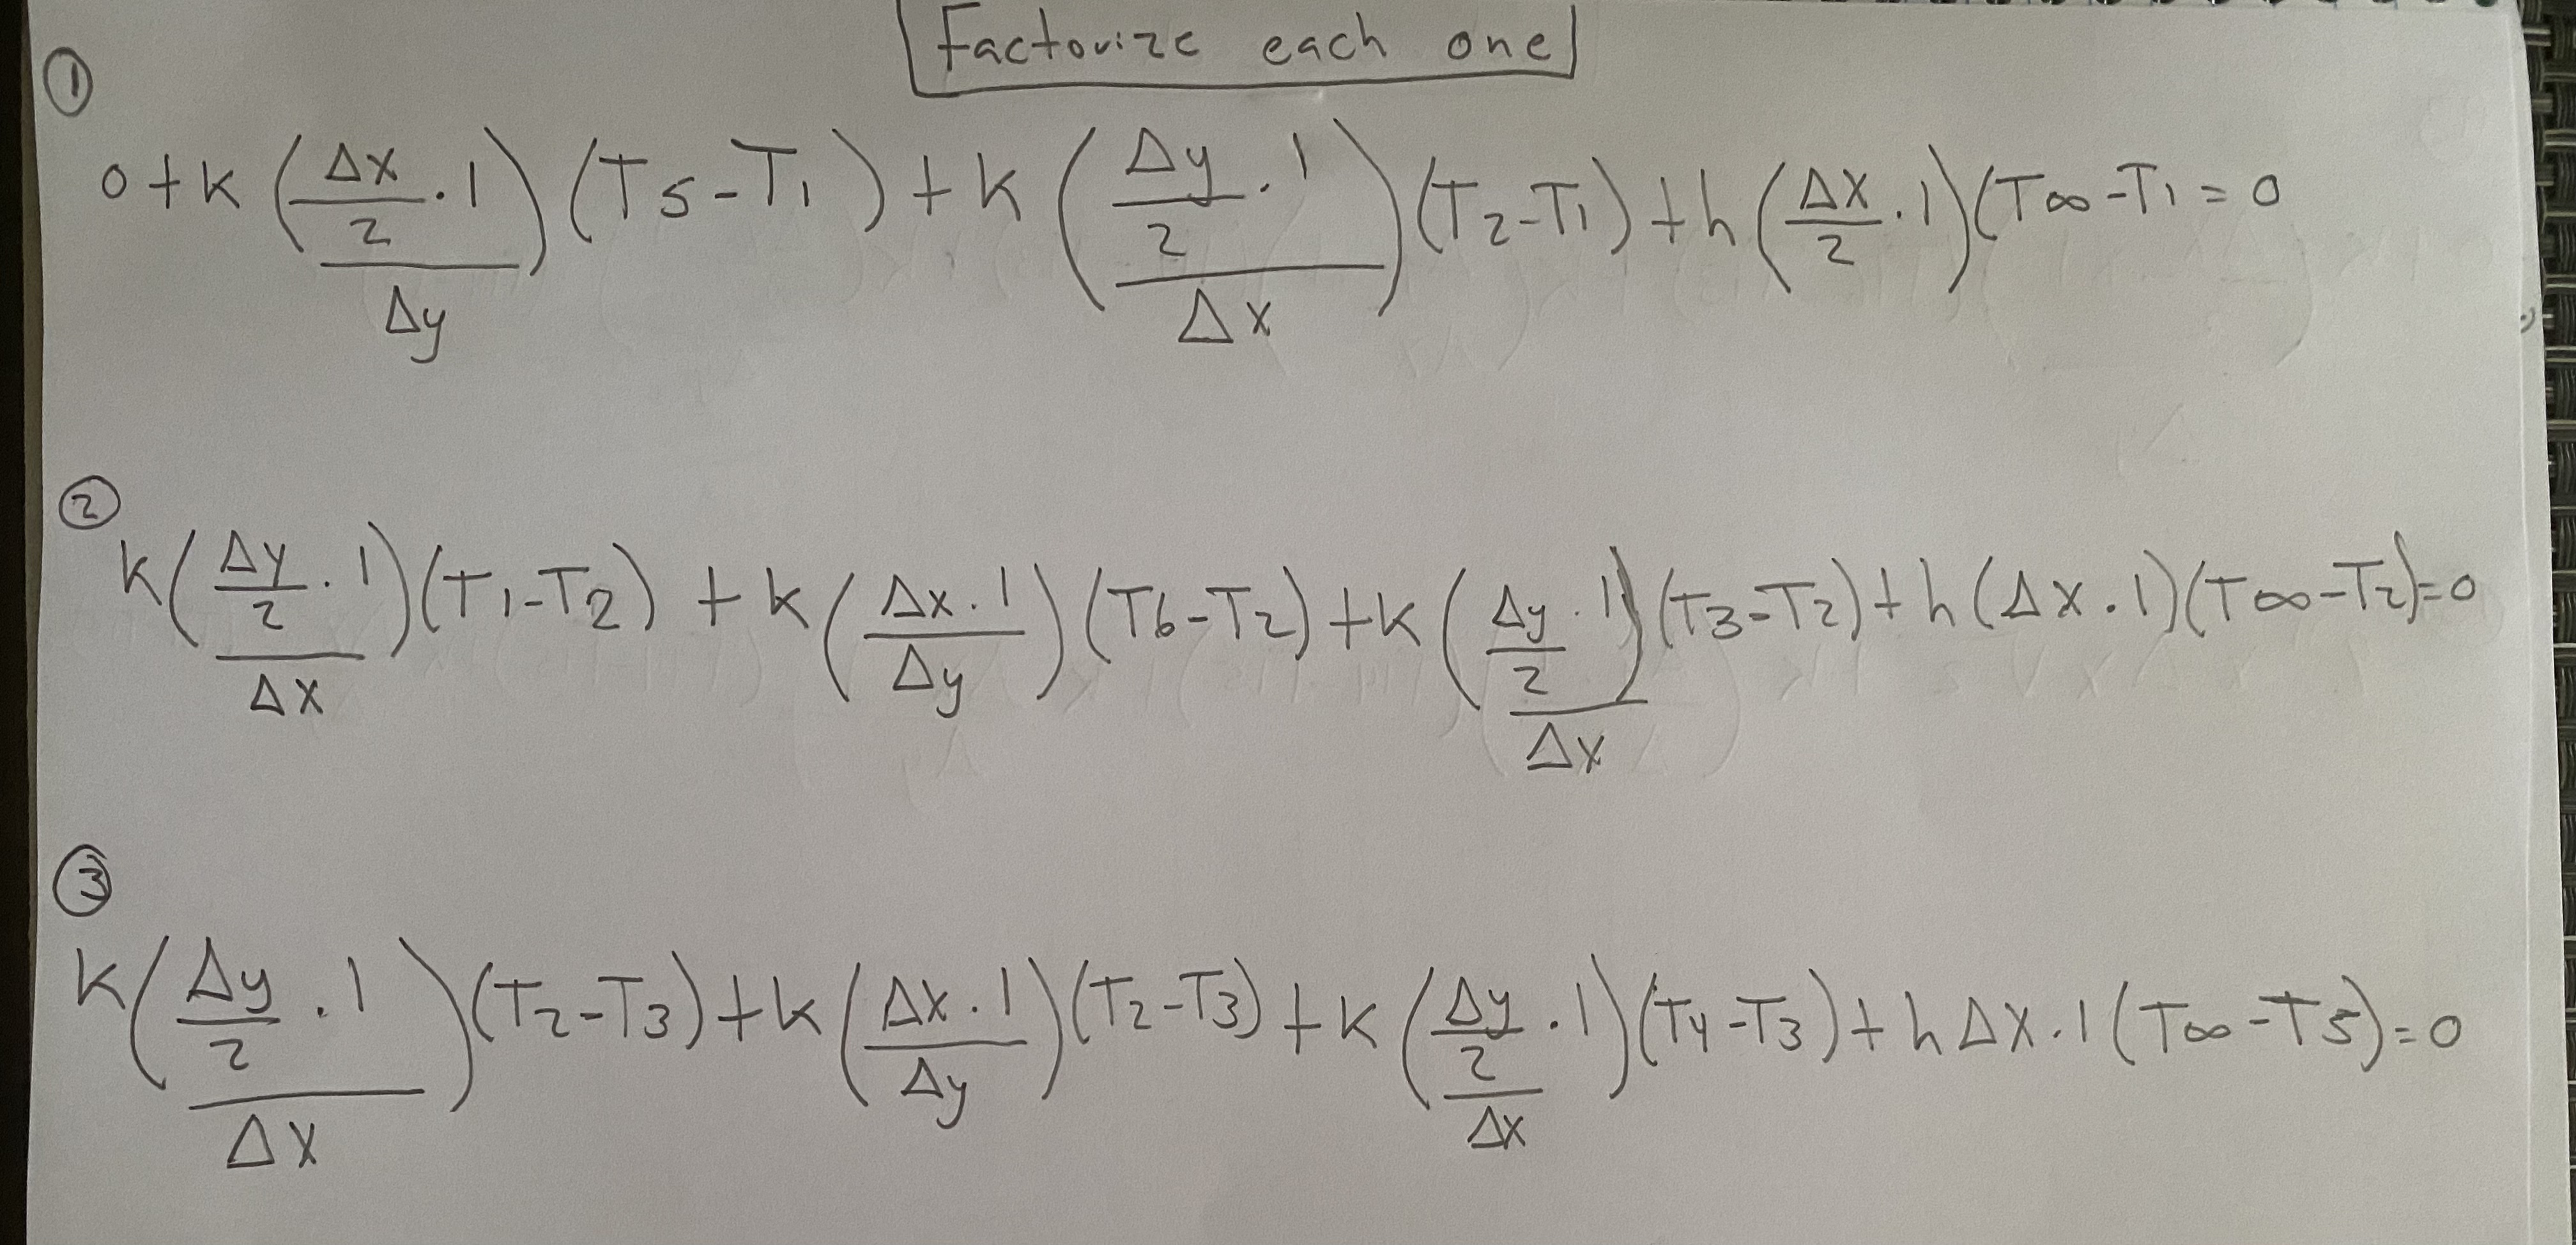 Factorize each one
①
0 + k ((Δx/2 · 1)/Δy) (T5 - T1) + k ((Δy/2 · 1)/Δx) (T2 - T1) + h (Δx/2 · 1) (T∞ - T1 = 0
②
k ((Δy/2 · 1)/Δx) (T1 - T2) + k ((Δx · 1)/Δy) (T6 - T2) + k ((Δy/2 · 1)/Δx) (T3 - T2) + h (Δx · 1) (T∞ - T2) = 0
③
k ((Δy/2 · 1)/Δx) (T2 - T3) + k ((Δx · 1)/Δy) (T2 - T3) + k ((Δy/2 · 1)/Δx) (T4 - T3) + h Δx · 1 (T∞ - T5) = 0